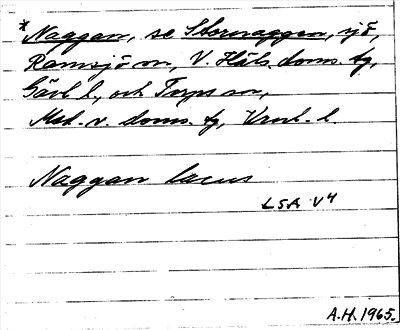 *Naggan, se Stornaggen, sjö,
Ramsjö sn, V. Häls. doms. tg,
Gävl. l., och Torps sn,
Med. v. doms. tg, Vnrl. l.
Naggan lacus
LSA V4
A.H. 1965.